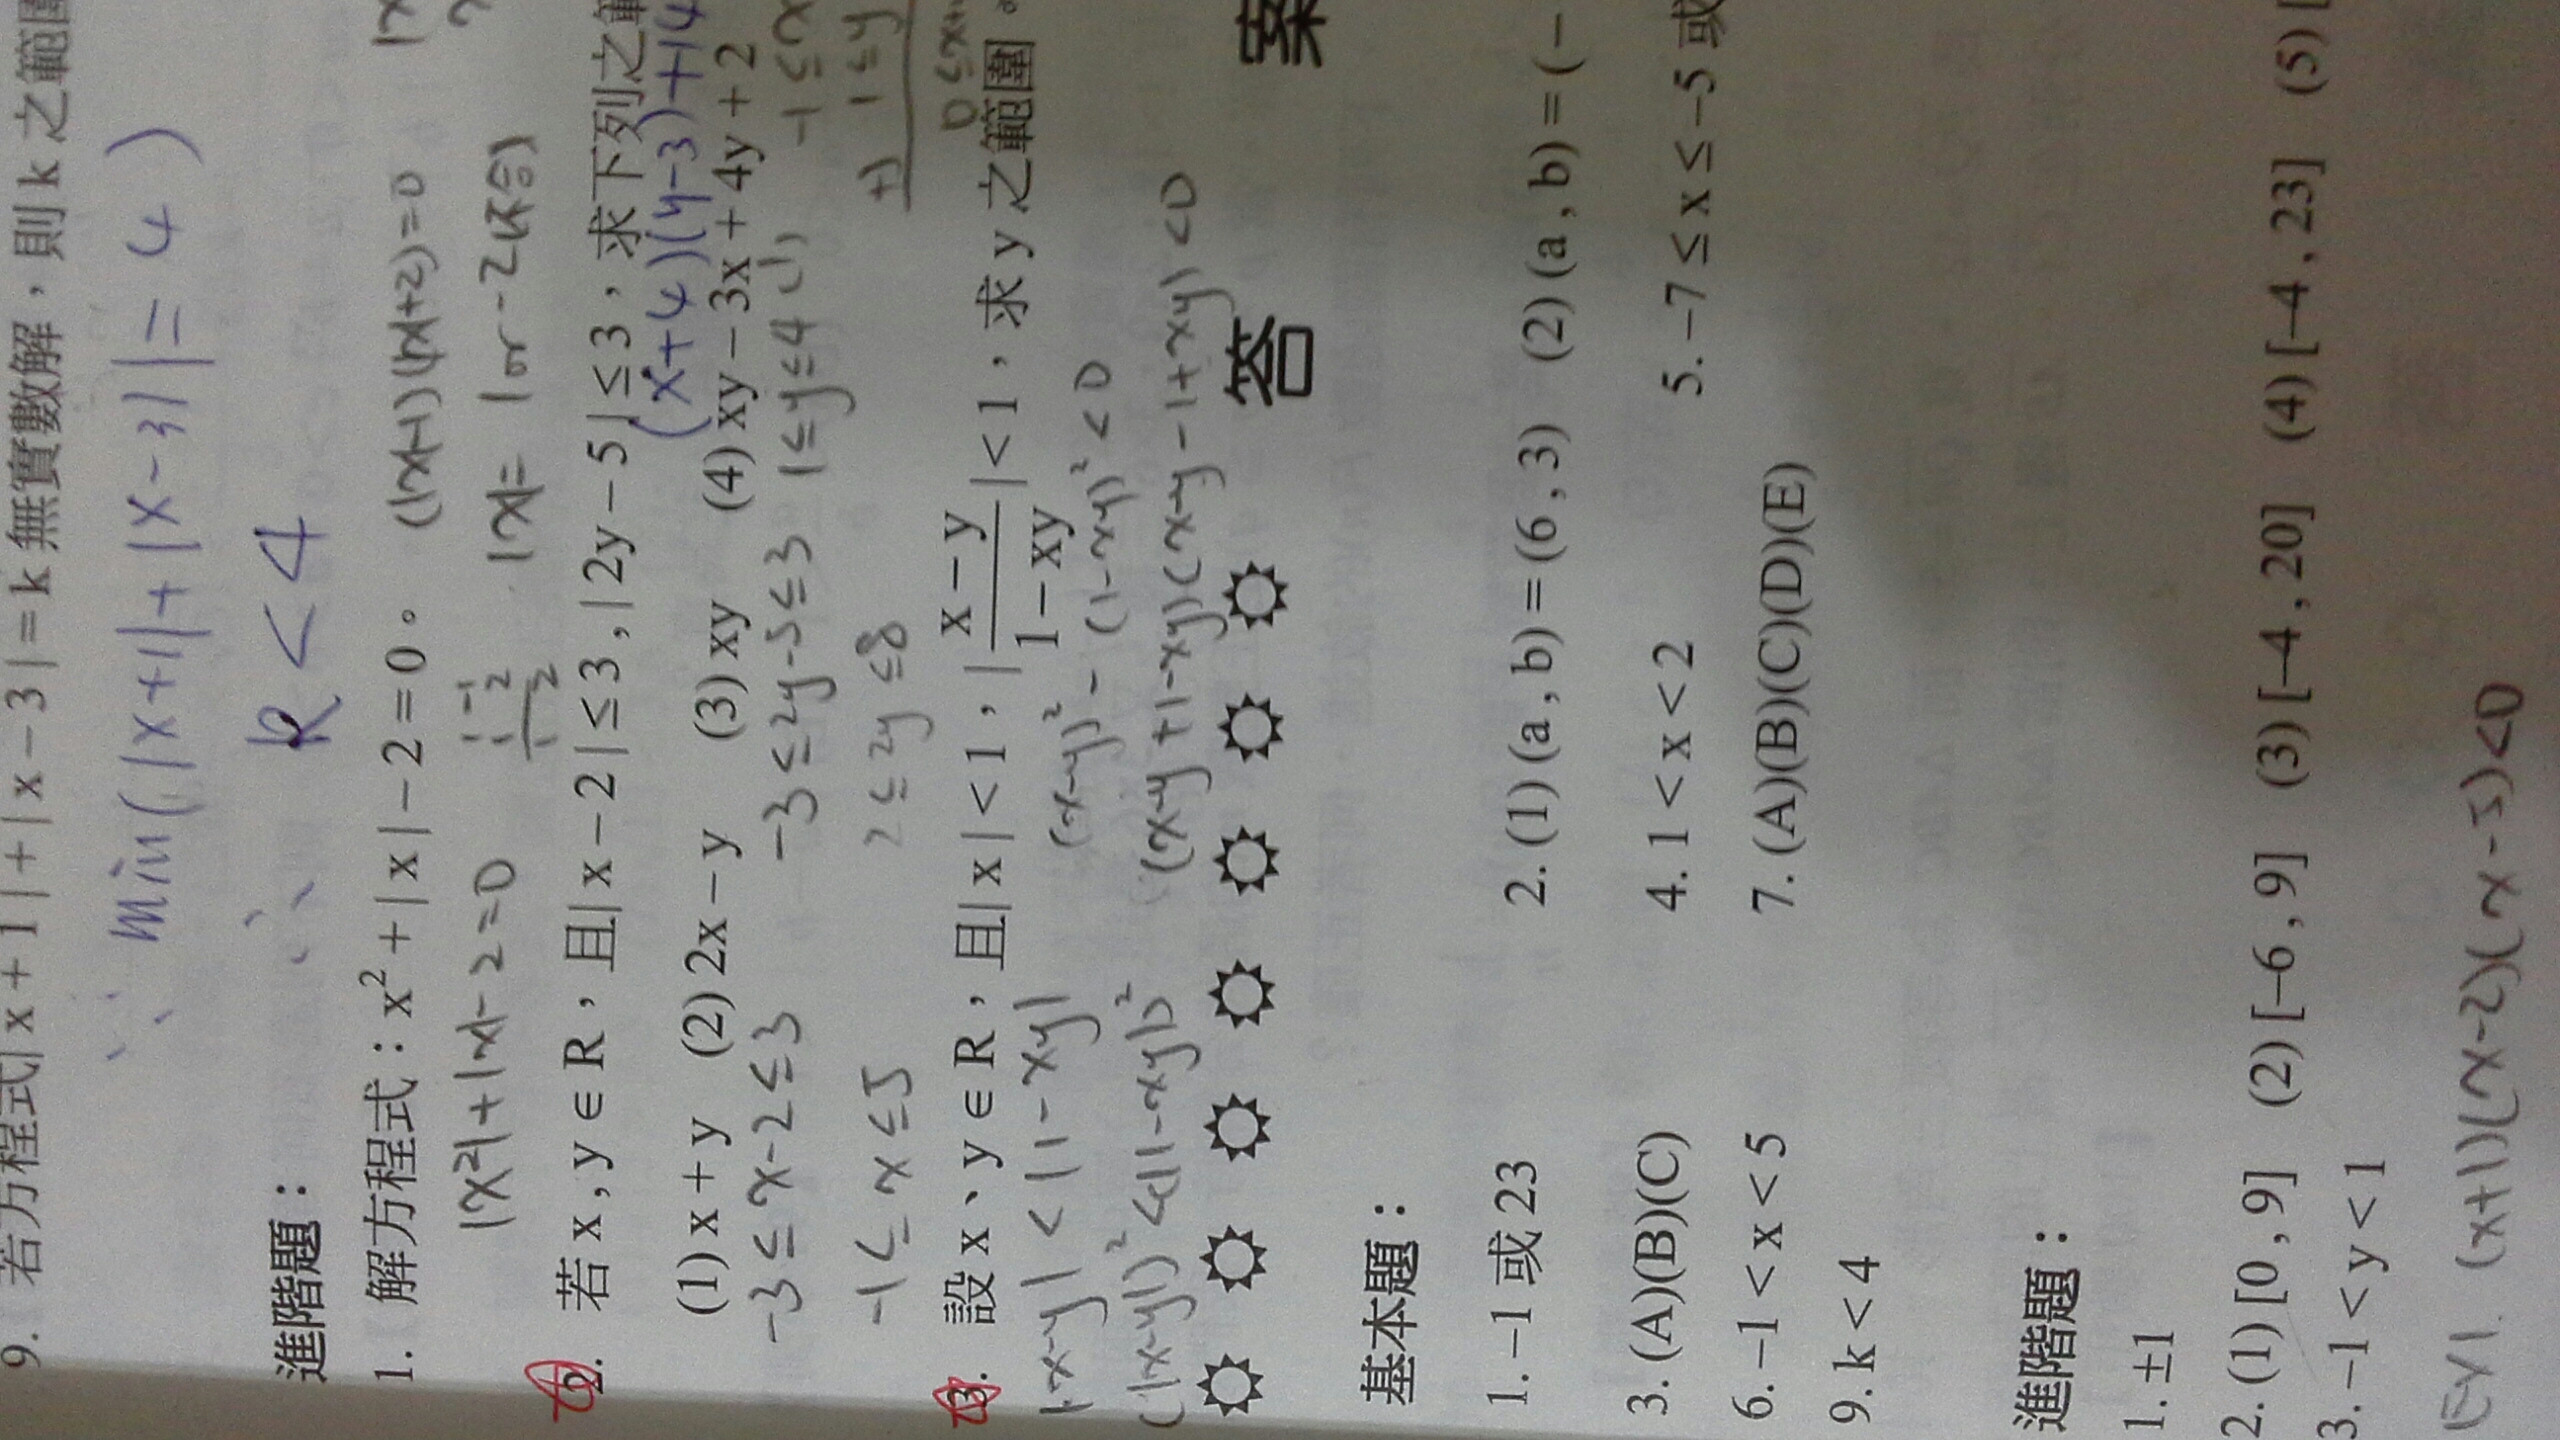 9. 若方程式|x+1|+|x-3|=k 無實數解，則 k 之範圍
∵ min(|x+1|+|x-3|=4)
∴ k<4
進階題：
1. 解方程式：x²+|x|-2=0。 (|x|-1)(|x|+2)=0
|x²|+|x|-2=0 |x|= 1 or -2(不合)
2. 若 x,y∈R，且|x-2|≤3,|2y-5|≤3，求下列之範
(x+4)(y-3)+14
(1) x+y (2) 2x-y (3) xy (4) xy-3x+4y+2
-3≤x-2≤3 -3≤2y-5≤3 1≤y≤4 (1) -1≤x
-1≤x≤5 2≤2y≤8 +) 1≤y
3. 設 x、y∈R，且|x|<1，|x-y/1-xy|<1，求 y 之範圍。
|x-y|<|1-xy| (x-y)²-(1-xy)²<0
(|x-y|)²<(|1-xy|)² (x-y+1-xy)(x-y-1+xy)<0
答 案
基本題：
1. -1 或 23 2. (1) (a,b)=(6,3) (2) (a,b)=(-
3. (A)(B)(C) 4. 1<x<2 5. -7≤x≤-5 或
6. -1<x<5 7. (A)(B)(C)(D)(E)
9. k<4
進階題：
1. ±1
2. (1) [0,9] (2) [-6,9] (3) [-4,20] (4) [-4,23] (5) [
3. -1<y<1
EX1. (x+1)(x-2)(x-5)<0